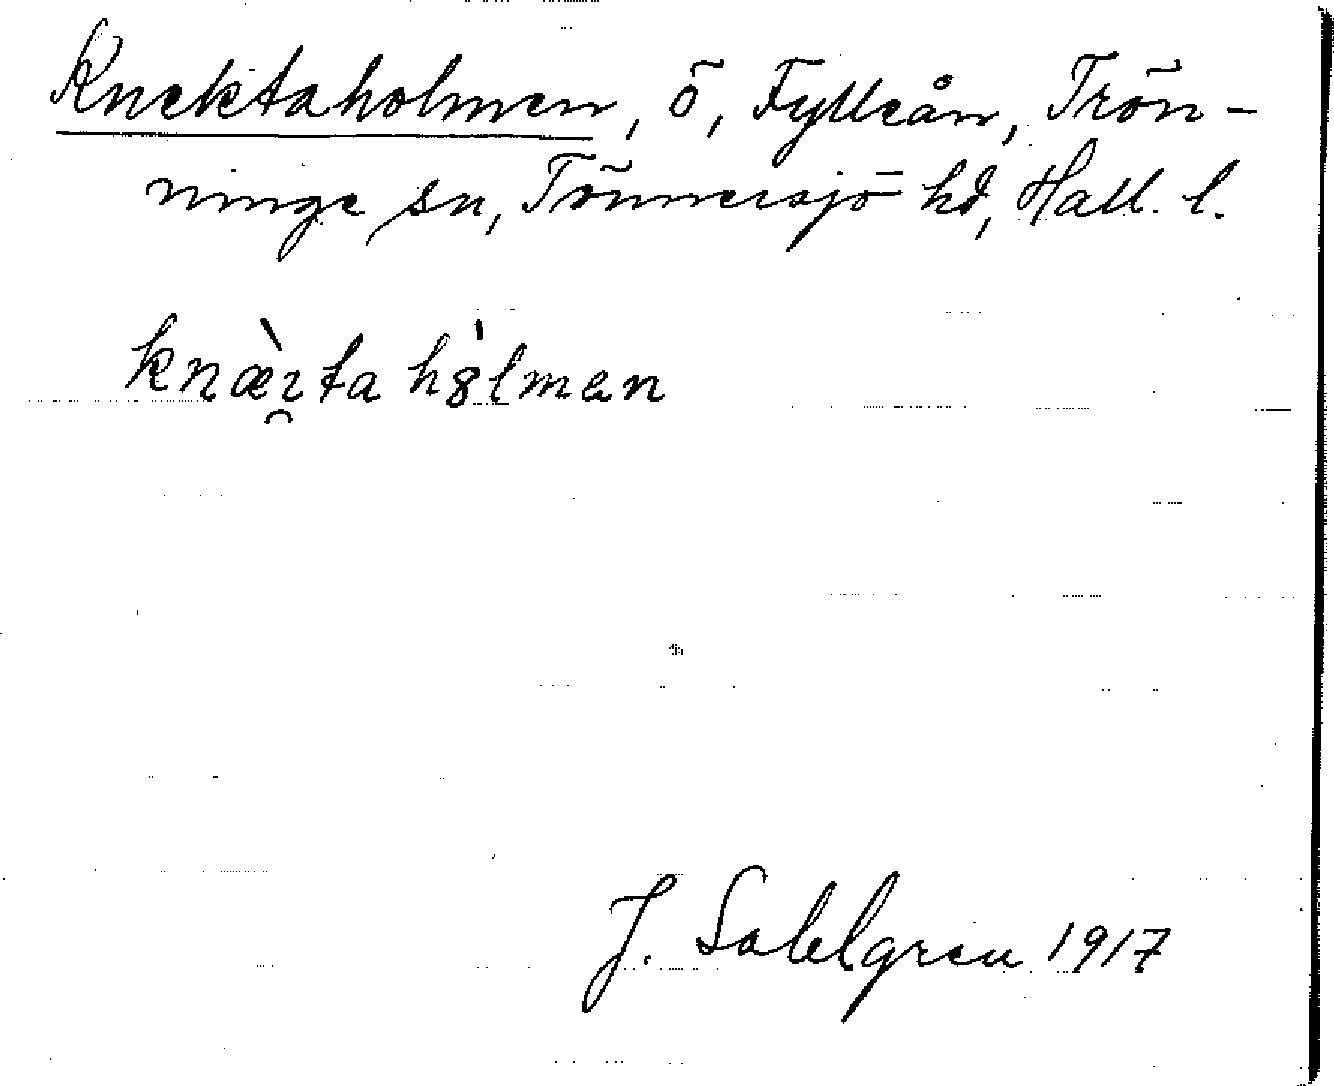 Knektaholmen, ö, Fylleån, Trön-
ninge sn, Tönnersjö hd, Hall. l.
knæ̀ɪ̯ta hȣ̍lmen
J. Sahlgren 1917